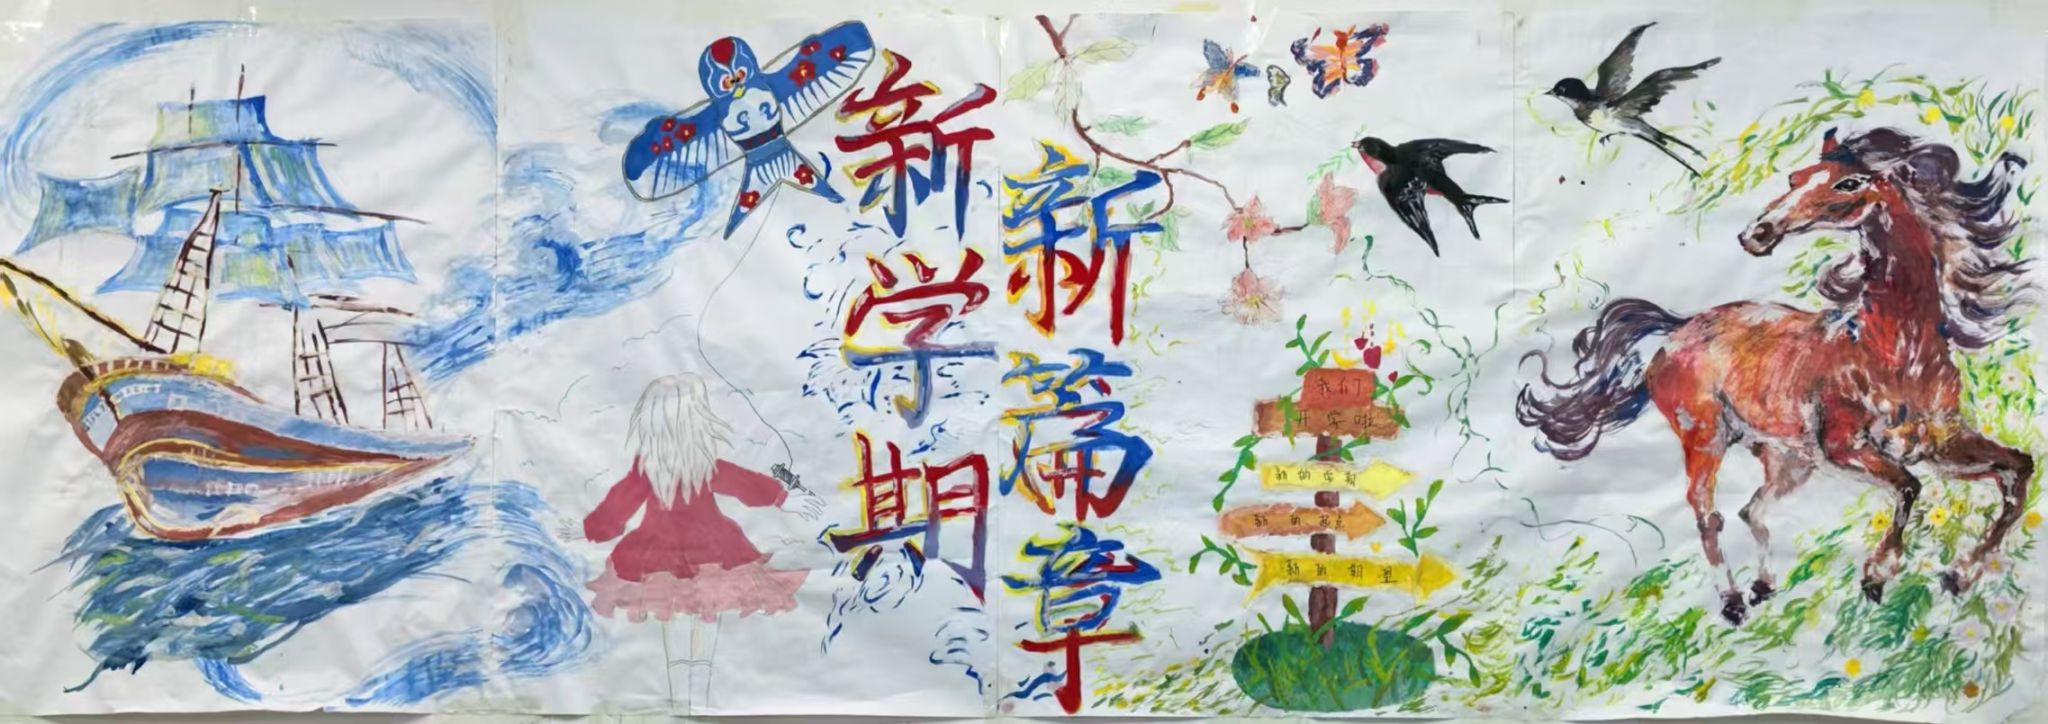 新学期
新篇章
我们
开学啦
新的学期
新的起点
新的期望